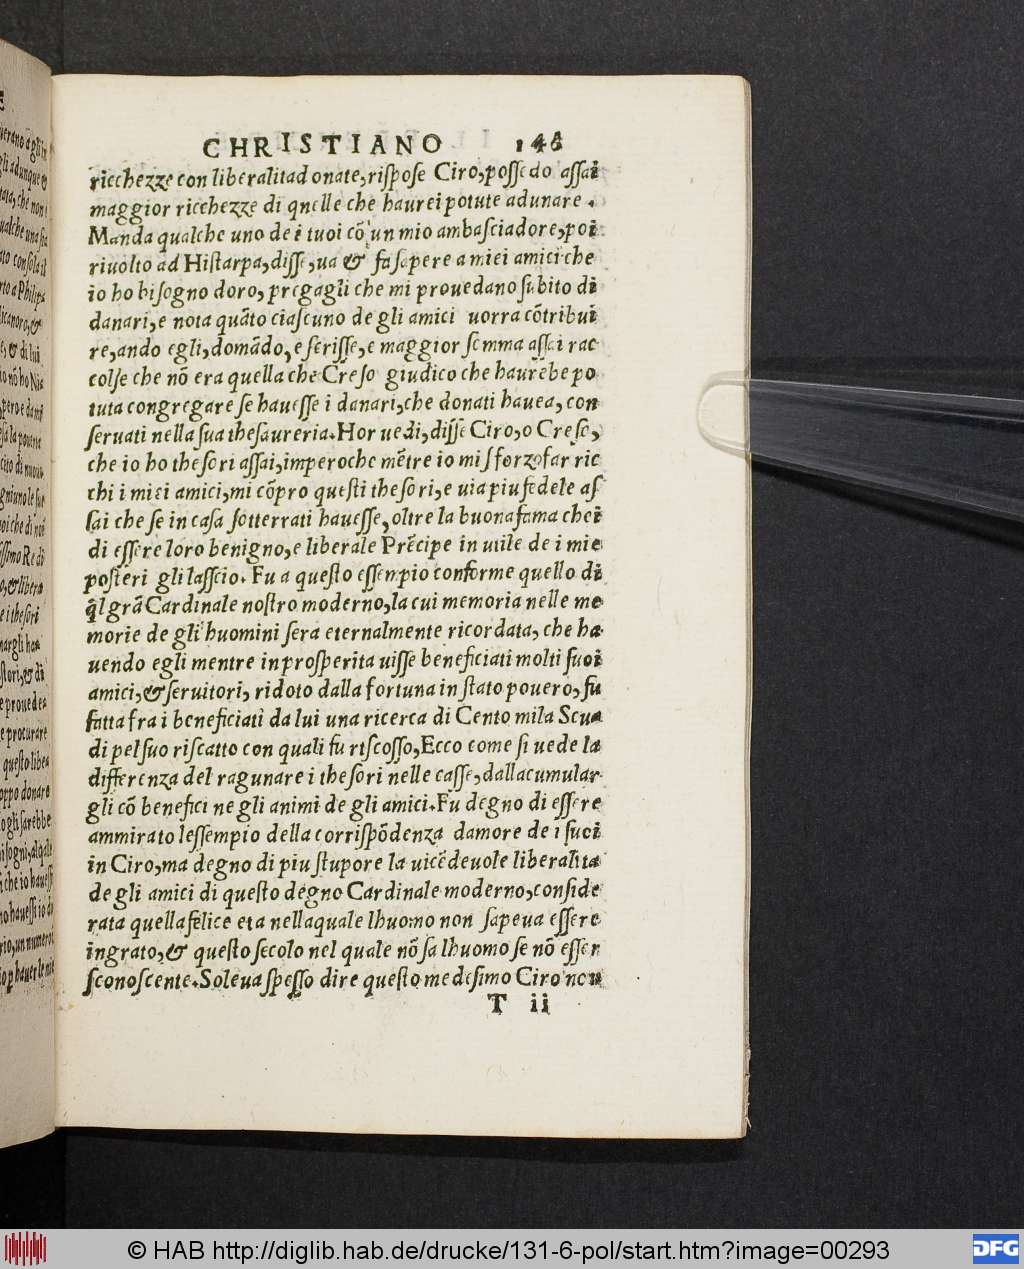 CHRISTIANO 146
ricchezze con liberalitad onate, rispose Ciro, possedo assai
maggior ricchezze di qnelle che haurei potute adunare.
Manda qualche uno de i tuoi cō un mio ambasciadore, poi
riuolto ad Histarpa, disse, ua & fa sapere a miei amici che
io ho bisogno doro, pregagli che mi prouedano subito di
danari, e nota quāto ciascuno de gli amici uorra cōtribui
re, ando egli, domādo, e scrisse, e maggior somma assai rac
colse che nō era quella che Creso giudico che haurebe po
tuta congregare se hauesse i danari, che donati hauea, con
seruati nella sua thesaureria. Hor uedi, disse Ciro, o Creso,
che io ho thesori assai, imperoche mētre io mi sforzo far ric
chi i miei amici, mi cōpro questi thesori, e uia piu fedele as
sai che se in casa sotterrati hauesse, oltre la buona fama chei
di essere loro benigno, e liberale Prēcipe in utile de i mie
posteri gli lasscio. Fu a questo essempio conforme quello di
q̄l grā Cardinale nostro moderno, la cui memoria nelle me
morie de gli huomini sera eternalmente ricordata, che ha
uendo egli mentre in prosperita uisse beneficiati molti suoi
amici, & seruitori, ridoto dalla fortuna in stato pouero, fu
fatta fra i beneficiati da lui una ricerca di Cento mila Scu
di pel suo riscatto con quali fu riscosso, Ecco come si uede la
differenza del ragunare i thesori nelle casse, dallacumular
gli cō benefici ne gli animi de gli amici. Fu degno di essere
ammirato lessempio della corrispōdenza damore de i suoi
in Ciro, ma degno di piu stupore la uicēdeuole liberalita
de gli amici di questo degno Cardinale moderno, conside
rata quella felice eta nellaquale lhuomo non sapeua essere
ingrato, & questo secolo nel quale nō sa lhuomo se nō esser
sconoscente. Soleua spesso dire questo medesimo Ciro non
T ii
© HAB http://diglib.hab.de/drucke/131-6-pol/start.htm?image=00293
DFG